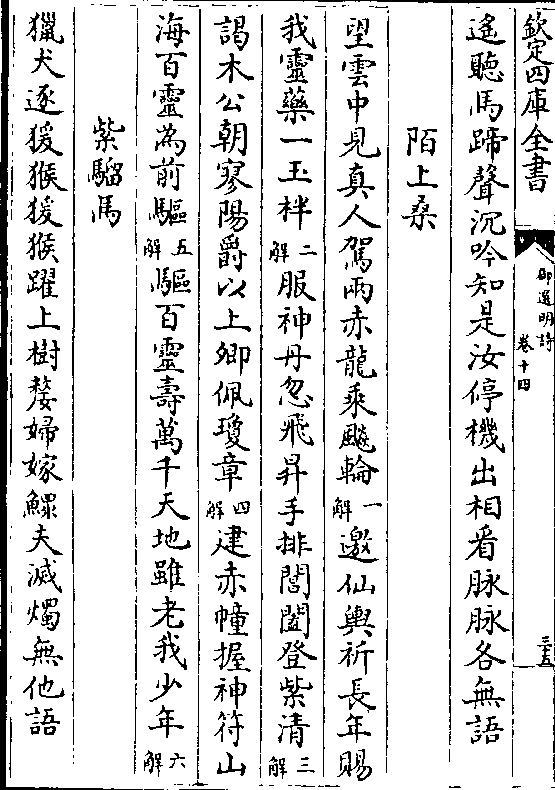 欽定四庫全書
御選明詩
卷十四
三十五
遙聽馬蹄聲沉吟知是汝停機出相看脉脉各無語
陌上桑
望雲中見真人駕兩赤龍乘飈輪一解邀仙輿祈長年賜
我靈藥一玉柈二解服神丹忽飛昇手排閶闔登紫清三解
謁木公朝寥陽爵以上卿佩瓊章四解建赤幢握神符山
海百靈為前驅五解驅百靈壽萬千天地雖老我少年六解
紫騮馬
獵犬逐猨猴猨猴躍上樹嫠婦嫁鰥夫滅燭無他語